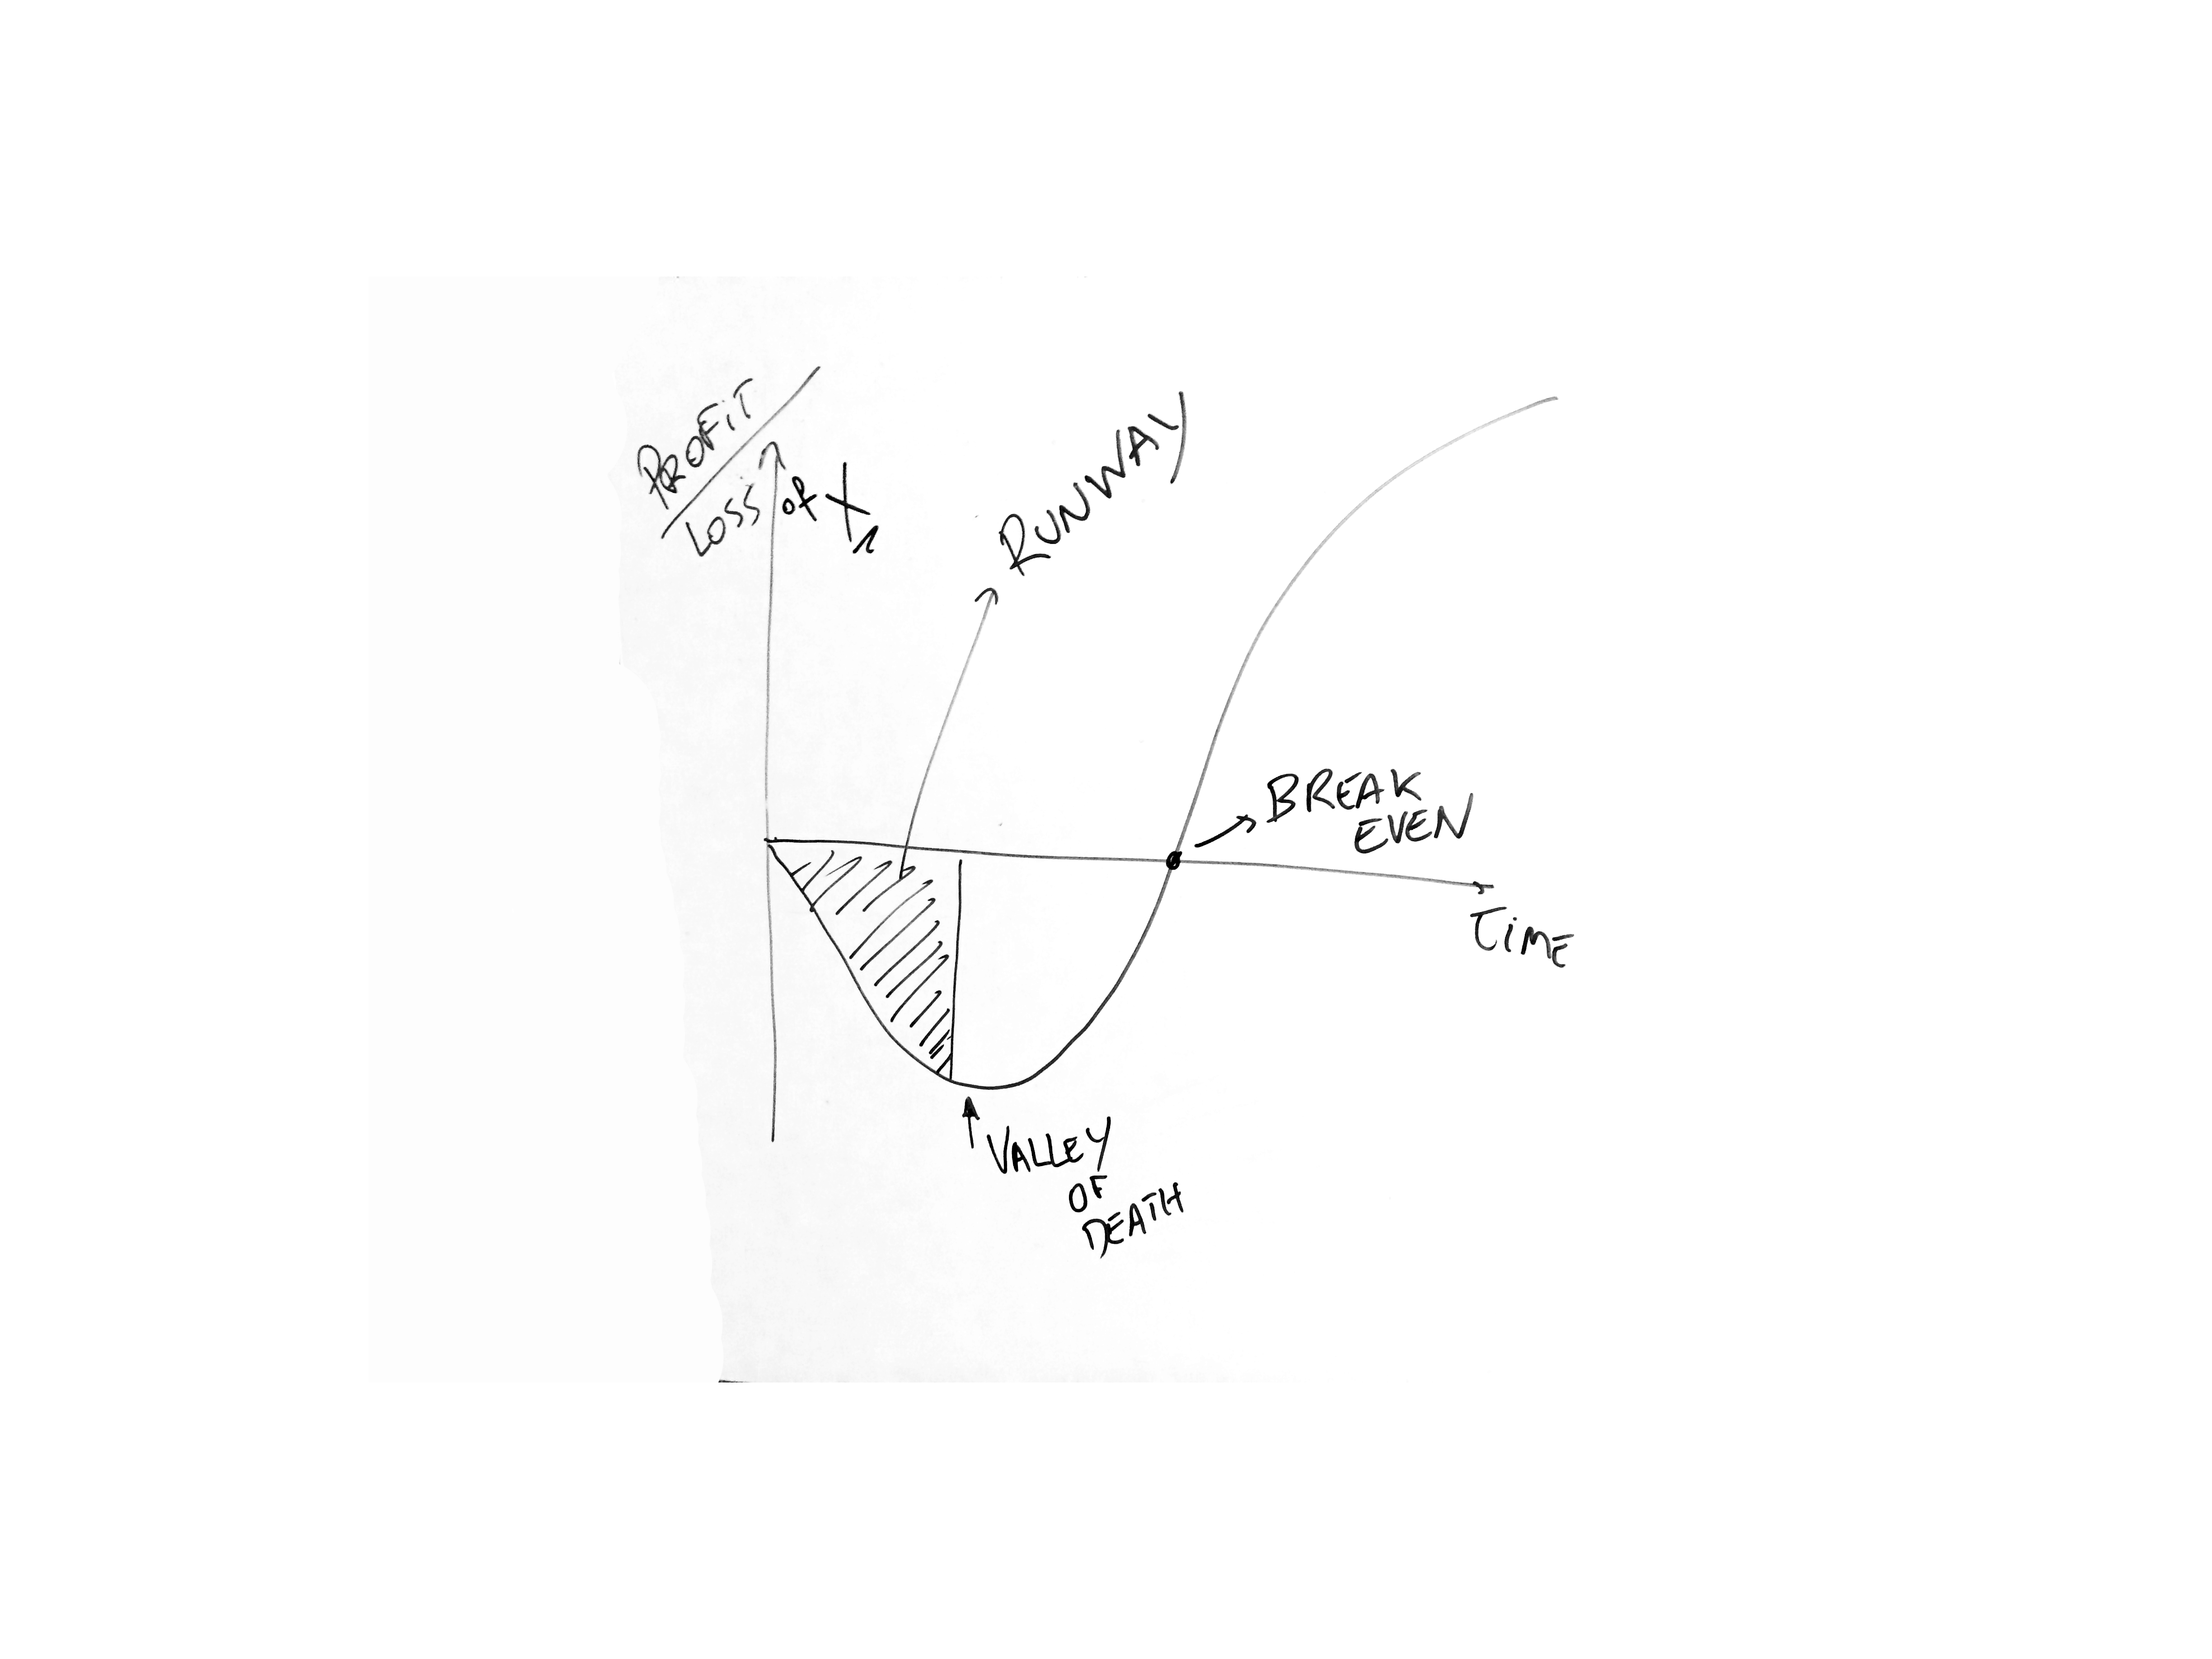 PROFiT
LOSS of X1
RUNWAY
BREAK
EVEN
TiME
VALLEY
OF
DEATH